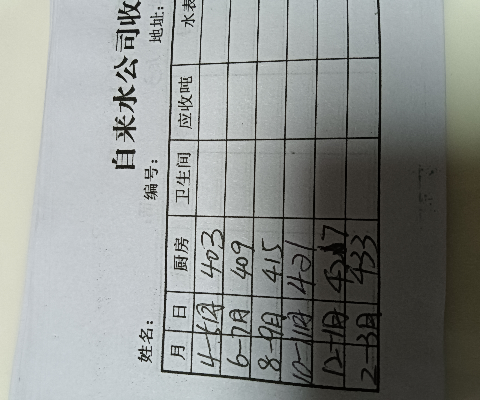 自来水公司收
姓名: 编号: 地址:
月 日 厨房 卫生间 应收吨 水表
4-5月 403
6-7月 409
8-9月 415
10-11月 421
12-1月 427
2-3月 433